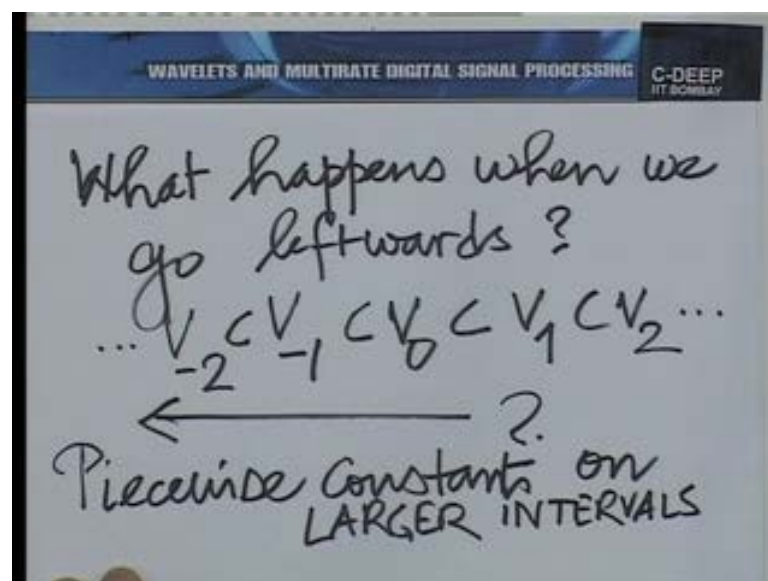 WAVELETS AND MULTIRATE DIGITAL SIGNAL PROCESSING
C-DEEP
IIT BOMBAY
What happens when we
go leftwards ?
... V₋₂ ⊂ V₋₁ ⊂ V₀ ⊂ V₁ ⊂ V₂ ...
← ?.
Piecewise constants on
LARGER INTERVALS